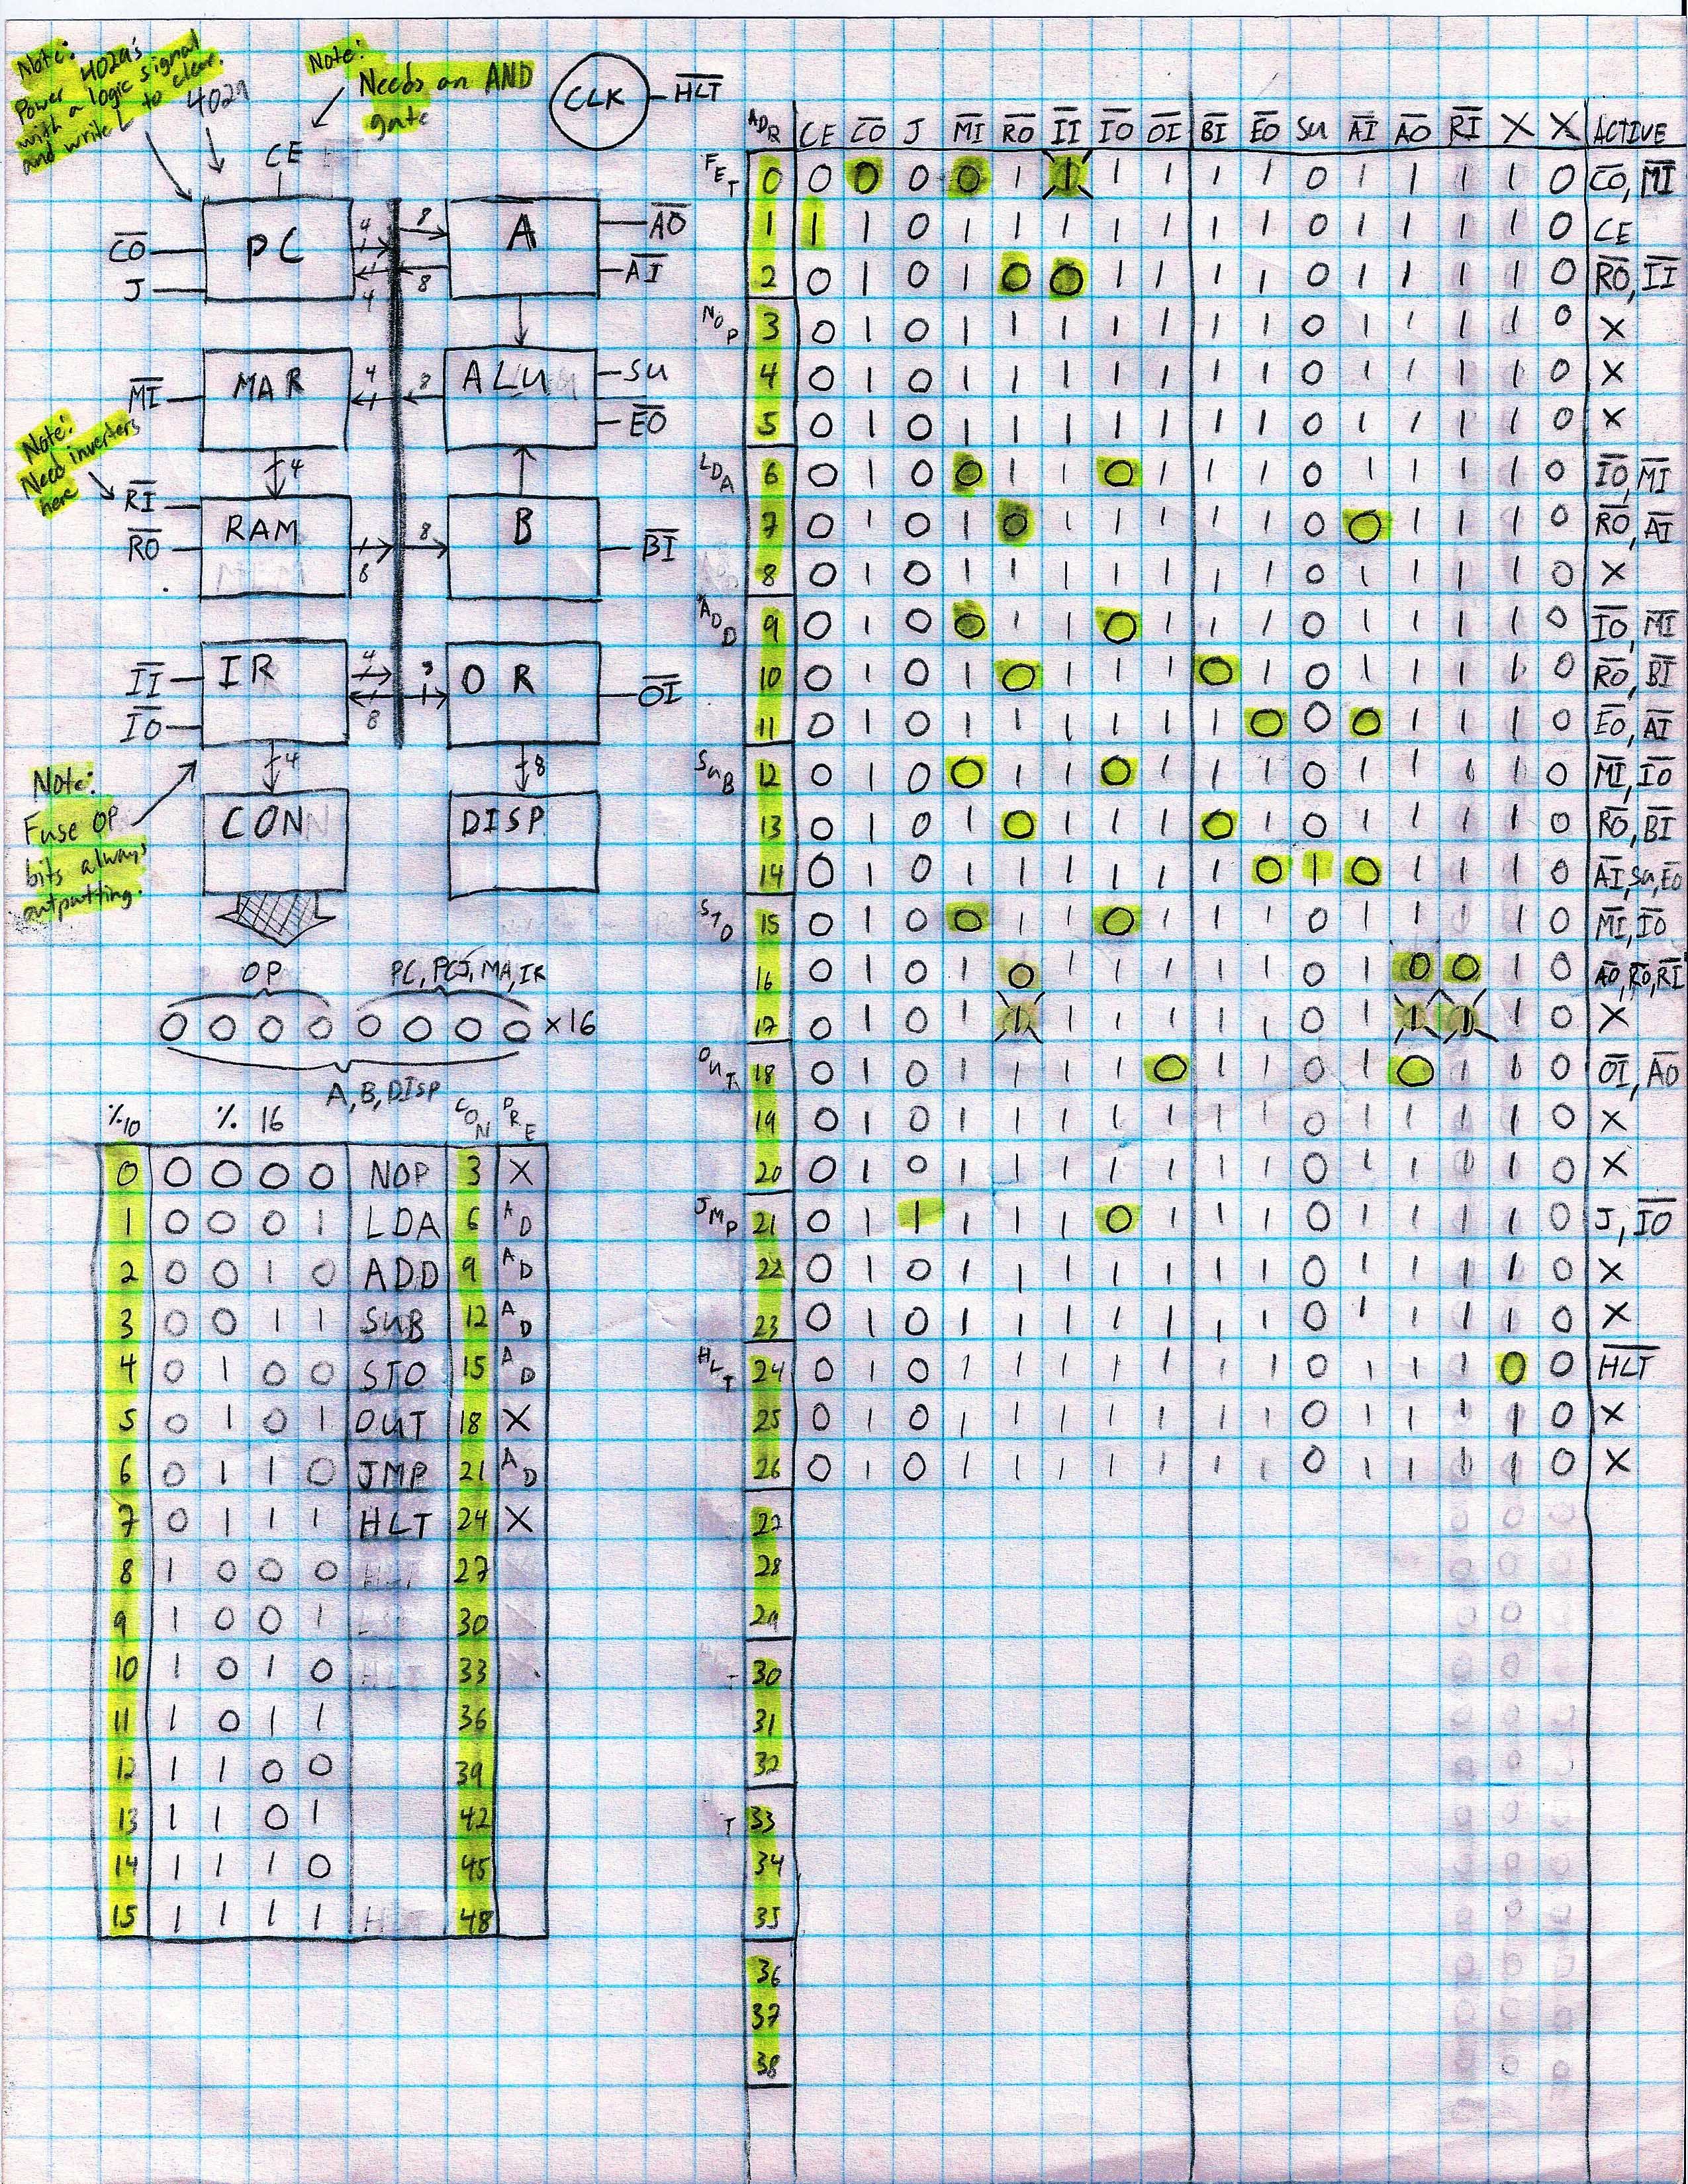 Note:
Power 4029's
with a logic signal
and write L to clear.
4029
Note:
Needs an AND
gate
CLK
H̅L̅T̅
CE
PC
C̅O̅
J
4
4
8
8
A
A̅O̅
A̅I̅
MAR
M̅I̅
4
8
ALU
SU
E̅O̅
Note:
Need inverters
here
4
R̅I̅
R̅O̅
RAM
8
8
B
B̅I̅
I̅I̅
I̅O̅
IR
4
8
OR
O̅I̅
Note:
Fuse OP
bits always
outputting.
4
8
CON
DISP
OP
PC, PCJ, MA, IR
0 0 0 0 0 0 0 0 x16
A, B, DISP
%10 % 16 CON PRE
0 0 0 0 0 NOP 3 X
1 0 0 0 1 LDA 6 AD
2 0 0 1 0 ADD 9 AD
3 0 0 1 1 SUB 12 AD
4 0 1 0 0 STO 15 AD
5 0 1 0 1 OUT 18 X
6 0 1 1 0 JMP 21 AD
7 0 1 1 1 HLT 24 X
8 1 0 0 0 27
9 1 0 0 1 30
10 1 0 1 0 33
11 1 0 1 1 36
12 1 1 0 0 39
13 1 1 0 1 42
14 1 1 1 0 45
15 1 1 1 1 48
ADR CE C̅O̅ J M̅I̅ R̅O̅ I̅I̅ I̅O̅ O̅I̅ B̅I̅ E̅O̅ SU A̅I̅ A̅O̅ R̅I̅ X X ACTIVE
FET 0 0 0 0 0 1 1 1 1 1 1 0 1 1 1 1 0 C̅O̅, M̅I̅
1 1 1 0 1 1 1 1 1 1 1 0 1 1 1 1 0 CE
2 0 1 0 1 0 0 1 1 1 1 0 1 1 1 1 0 R̅O̅, I̅I̅
NOP 3 0 1 0 1 1 1 1 1 1 1 0 1 1 1 1 0 X
4 0 1 0 1 1 1 1 1 1 1 0 1 1 1 1 0 X
5 0 1 0 1 1 1 1 1 1 1 0 1 1 1 1 0 X
LDA 6 0 1 0 0 1 1 0 1 1 1 0 1 1 1 1 0 I̅O̅, M̅I̅
7 0 1 0 1 0 1 1 1 1 1 0 0 1 1 1 0 R̅O̅, A̅I̅
8 0 1 0 1 1 1 1 1 1 1 0 1 1 1 1 0 X
ADD 9 0 1 0 0 1 1 0 1 1 1 0 1 1 1 1 0 I̅O̅, M̅I̅
10 0 1 0 1 0 1 1 1 0 1 0 1 1 1 1 0 R̅O̅, B̅I̅
11 0 1 0 1 1 1 1 1 1 0 0 0 1 1 1 0 E̅O̅, A̅I̅
SUB 12 0 1 0 0 1 1 0 1 1 1 0 1 1 1 1 0 M̅I̅, I̅O̅
13 0 1 0 1 0 1 1 1 0 1 0 1 1 1 1 0 R̅O̅, B̅I̅
14 0 1 0 1 1 1 1 1 1 0 1 0 1 1 1 0 A̅I̅, SU, E̅O̅
STO 15 0 1 0 0 1 1 0 1 1 1 0 1 1 1 1 0 M̅I̅, I̅O̅
16 0 1 0 1 0 1 1 1 1 1 0 1 0 0 1 0 A̅O̅, R̅O̅, R̅I̅
17 0 1 0 1 1 1 1 1 1 1 0 1 1 1 1 0 X
OUT 18 0 1 0 1 1 1 1 0 1 1 0 1 0 1 1 0 O̅I̅, A̅O̅
19 0 1 0 1 1 1 1 1 1 1 0 1 1 1 1 0 X
20 0 1 0 1 1 1 1 1 1 1 0 1 1 1 1 0 X
JMP 21 0 1 1 1 1 1 0 1 1 1 0 1 1 1 1 0 J, I̅O̅
22 0 1 0 1 1 1 1 1 1 1 0 1 1 1 1 0 X
23 0 1 0 1 1 1 1 1 1 1 0 1 1 1 1 0 X
HLT 24 0 1 0 1 1 1 1 1 1 1 0 1 1 1 0 0 H̅L̅T̅
25 0 1 0 1 1 1 1 1 1 1 0 1 1 1 1 0 X
26 0 1 0 1 1 1 1 1 1 1 0 1 1 1 1 0 X
27
28
29
30
31
32
33
34
35
36
37
38